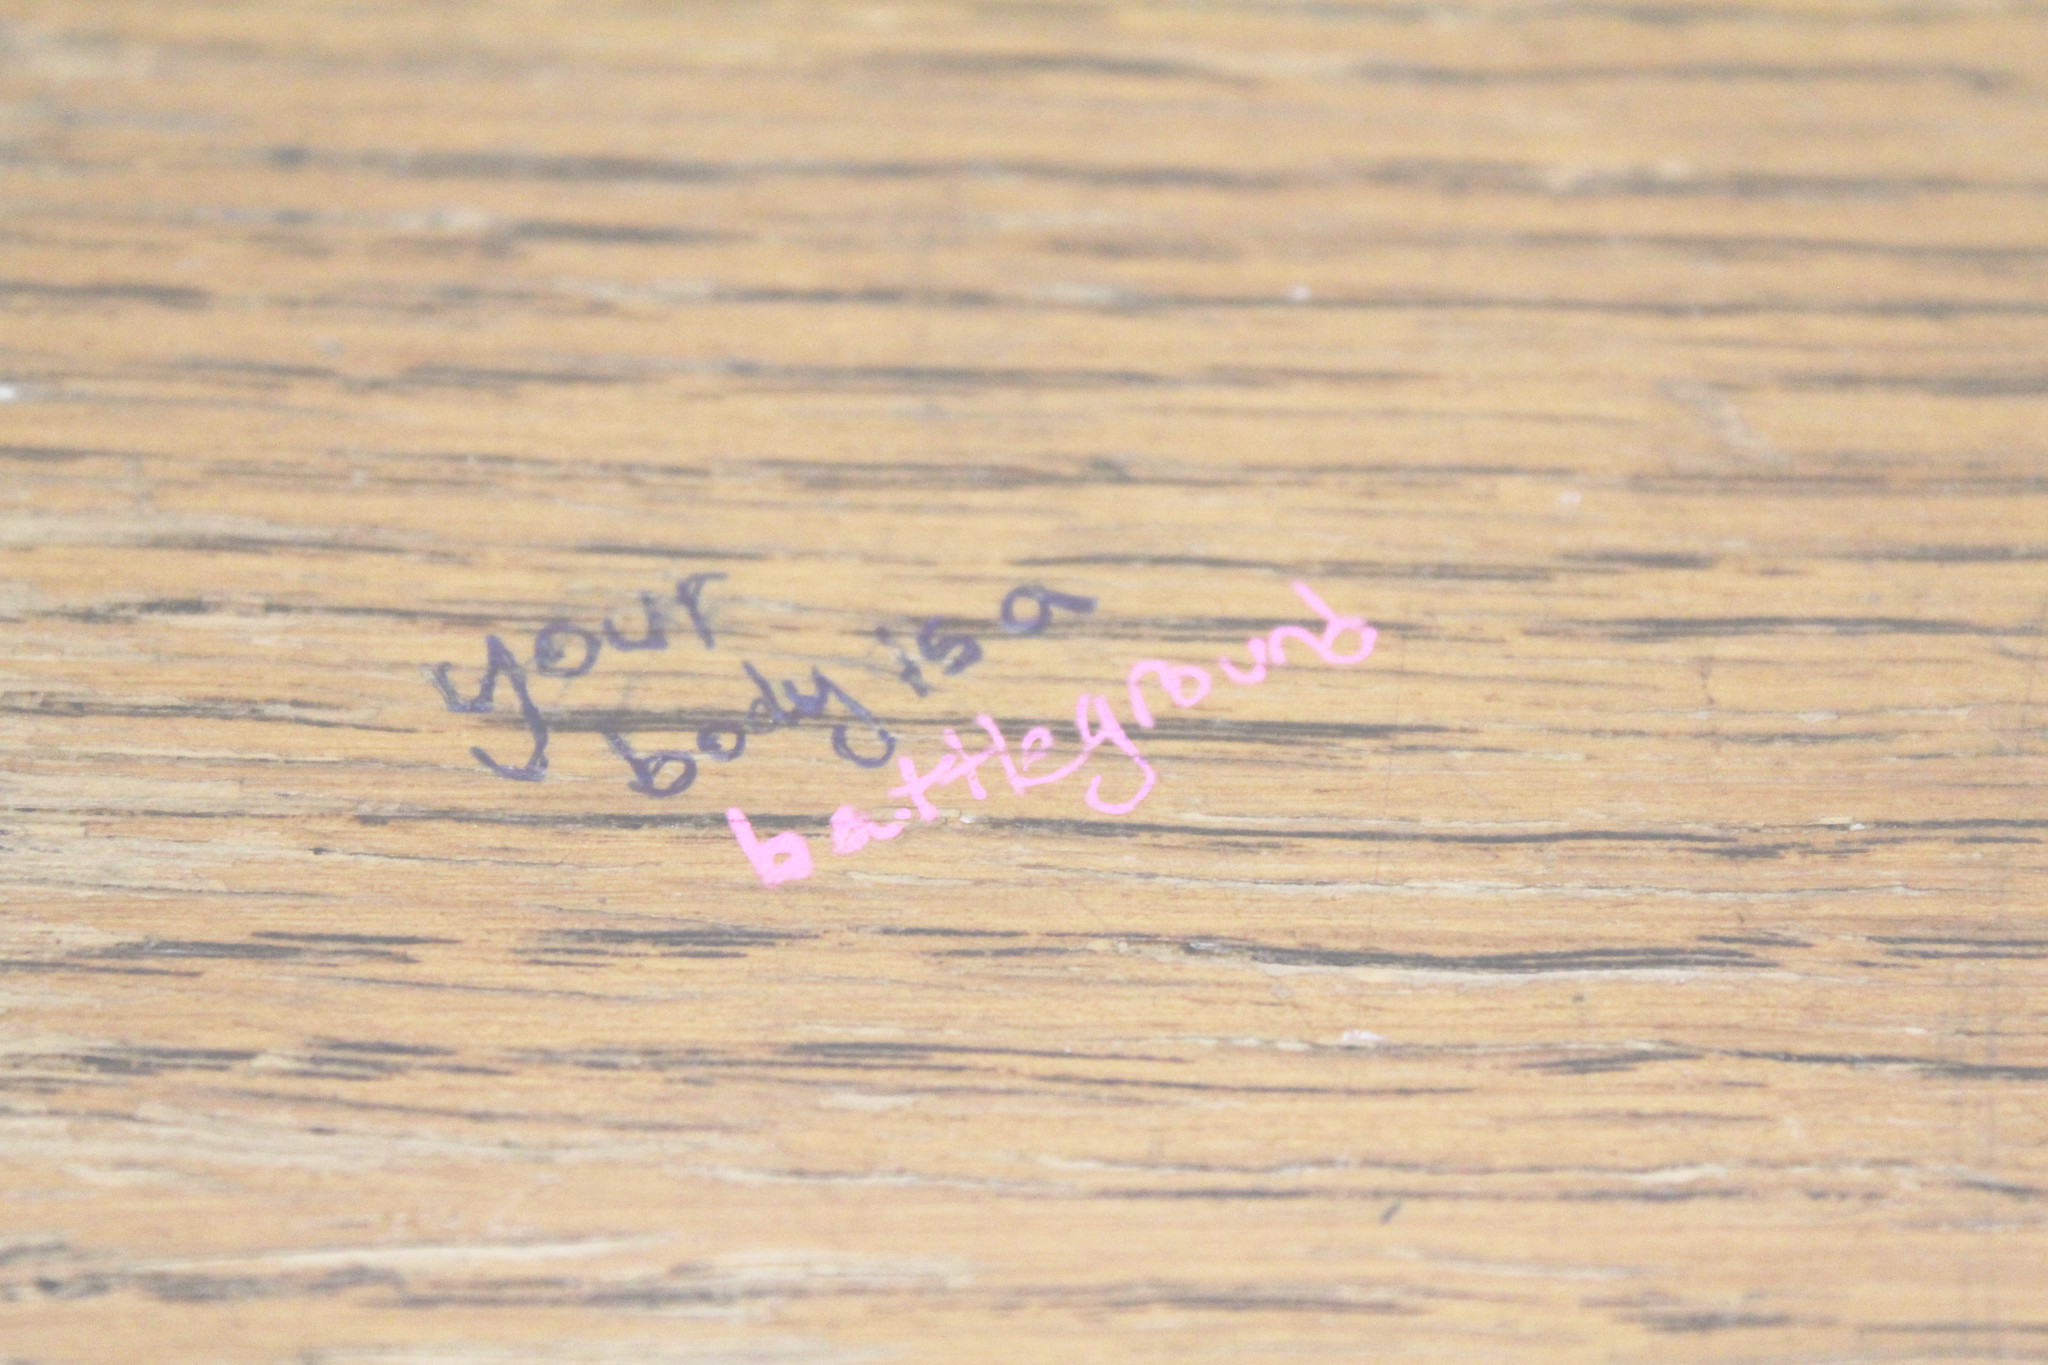 your
body is a
battleground